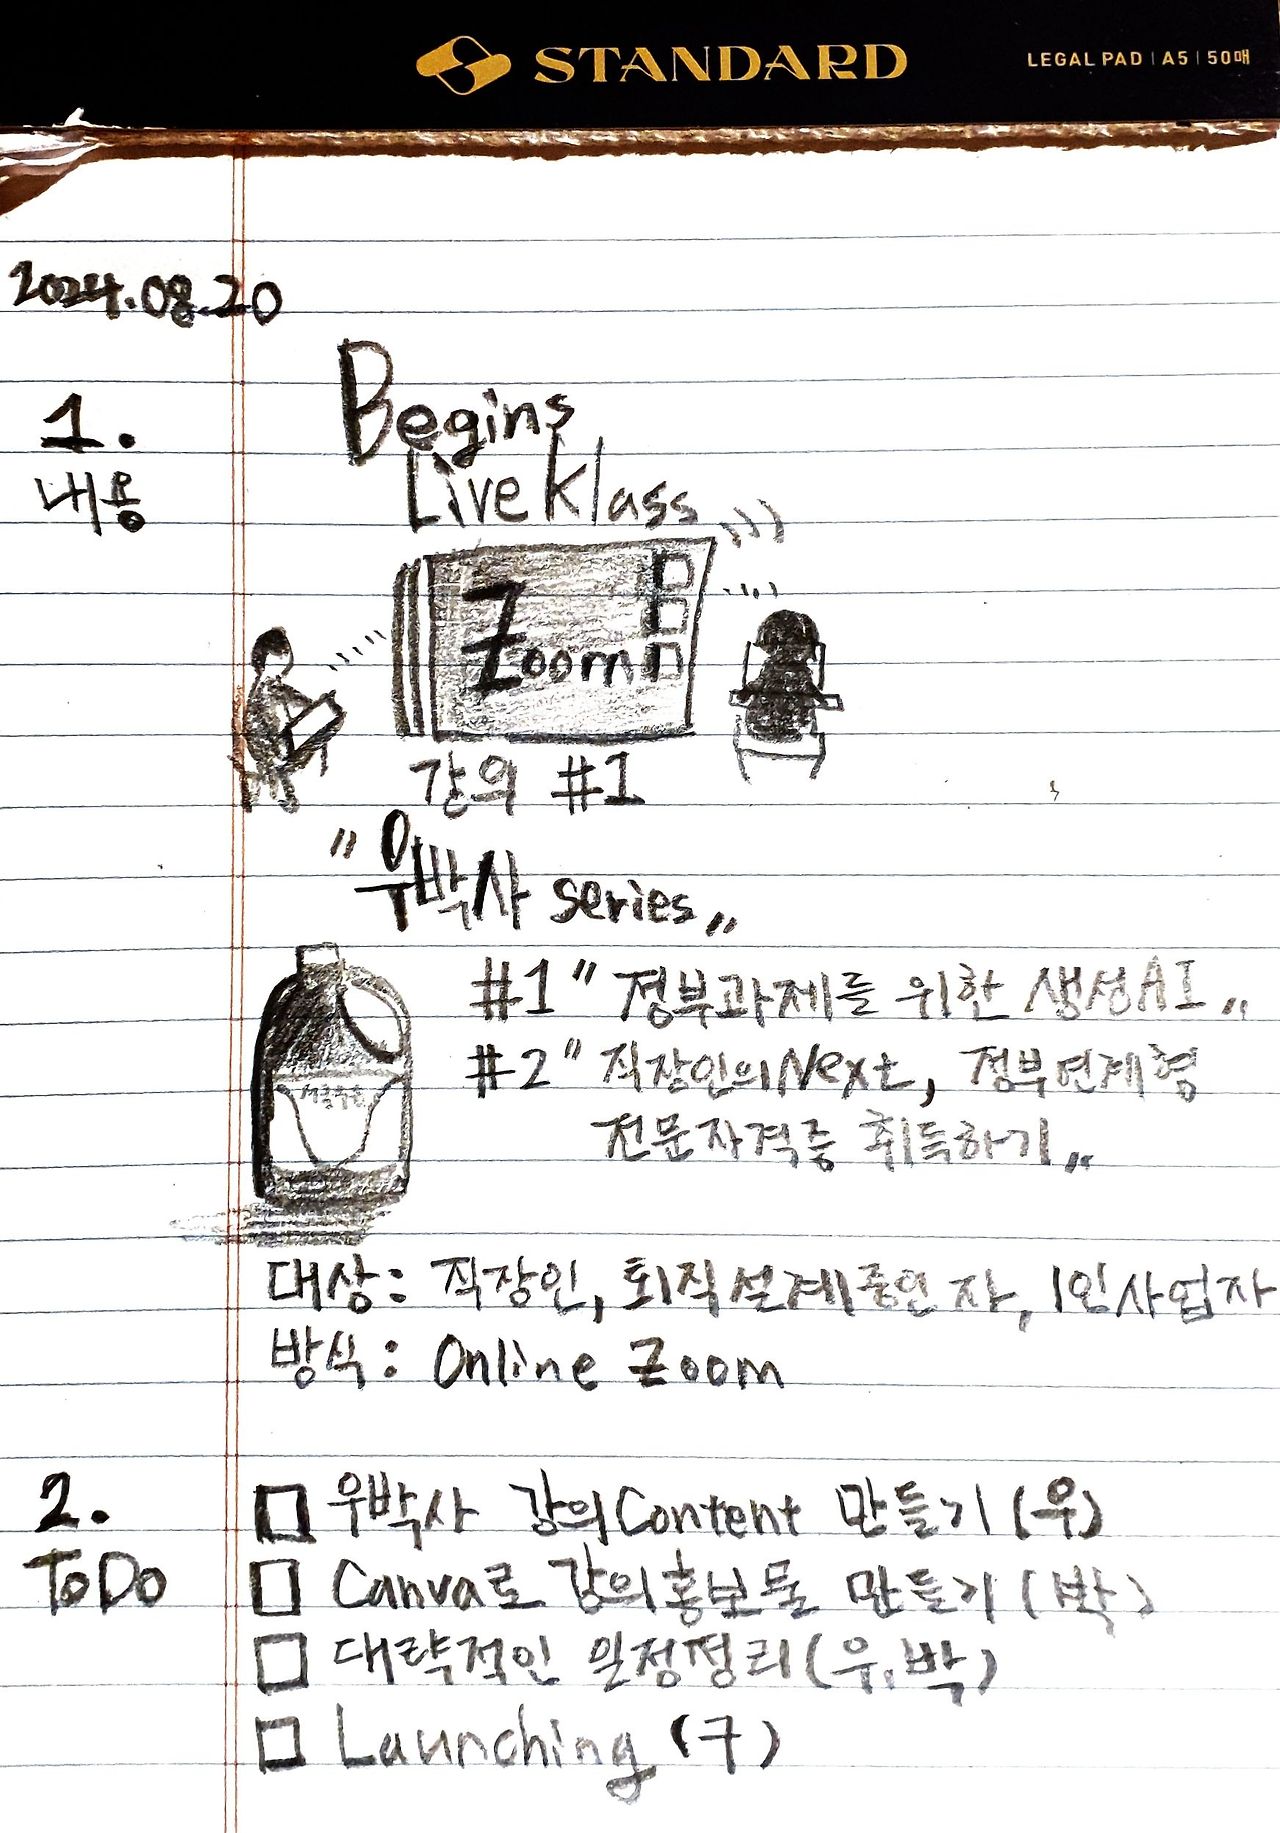 STANDARD
LEGAL PAD | A5 | 50매
2024.08.20
1.
내용
Begins
Live Klass
Zoom
강의 #1
"우박사 series"
#1 "정부과제를 위한 생성AI"
#2 "직장인의 Next, 정부연계형
전문자격증 취득하기"
대상: 직장인, 퇴직설계중인 자, 1인사업자
방식: Online Zoom
2.
ToDo
□ 우박사 강의Content 만들기 (우)
□ Canva로 강의홍보물 만들기 (박)
□ 대략적인 일정정리 (우,박)
□ Launching (구)